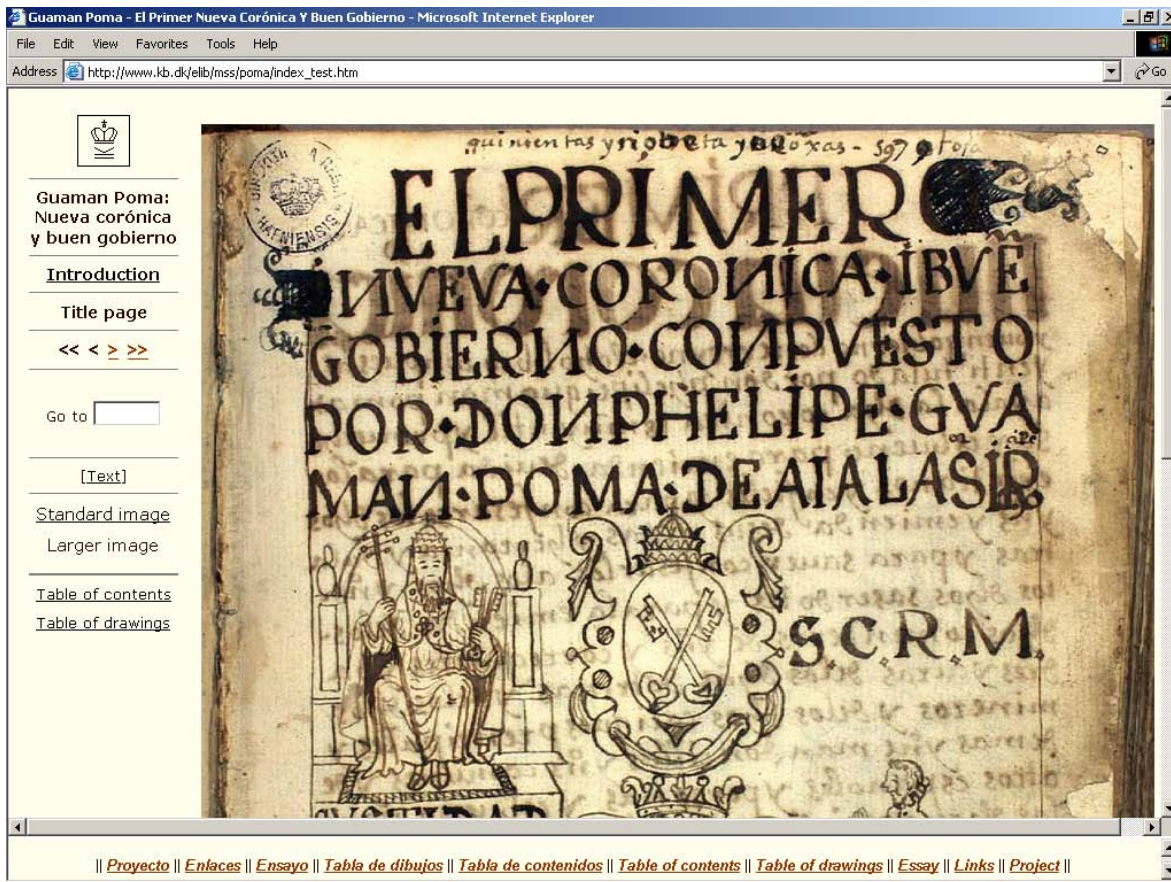 Guaman Poma - El Primer Nueva Corónica Y Buen Gobierno - Microsoft Internet Explorer
File Edit View Favorites Tools Help
Address http://www.kb.dk/elib/mss/poma/index_test.htm Go
Guaman Poma:
Nueva corónica
y buen gobierno
Introduction
Title page
<< < > >>
Go to
[Text]
Standard image
Larger image
Table of contents
Table of drawings
quinientas y
HAFNIENSIS
EL PRIMER
NVEVA·CORONICA·IBVĒ
GOBIERNO·CONPVESTO
POR·DON PHELIPE·GVA
MAN·POMA·DE AIALA
S.C.R.M.
|| Proyecto || Enlaces || Ensayo || Tabla de dibujos || Tabla de contenidos || Table of contents || Table of drawings || Essay || Links || Project ||